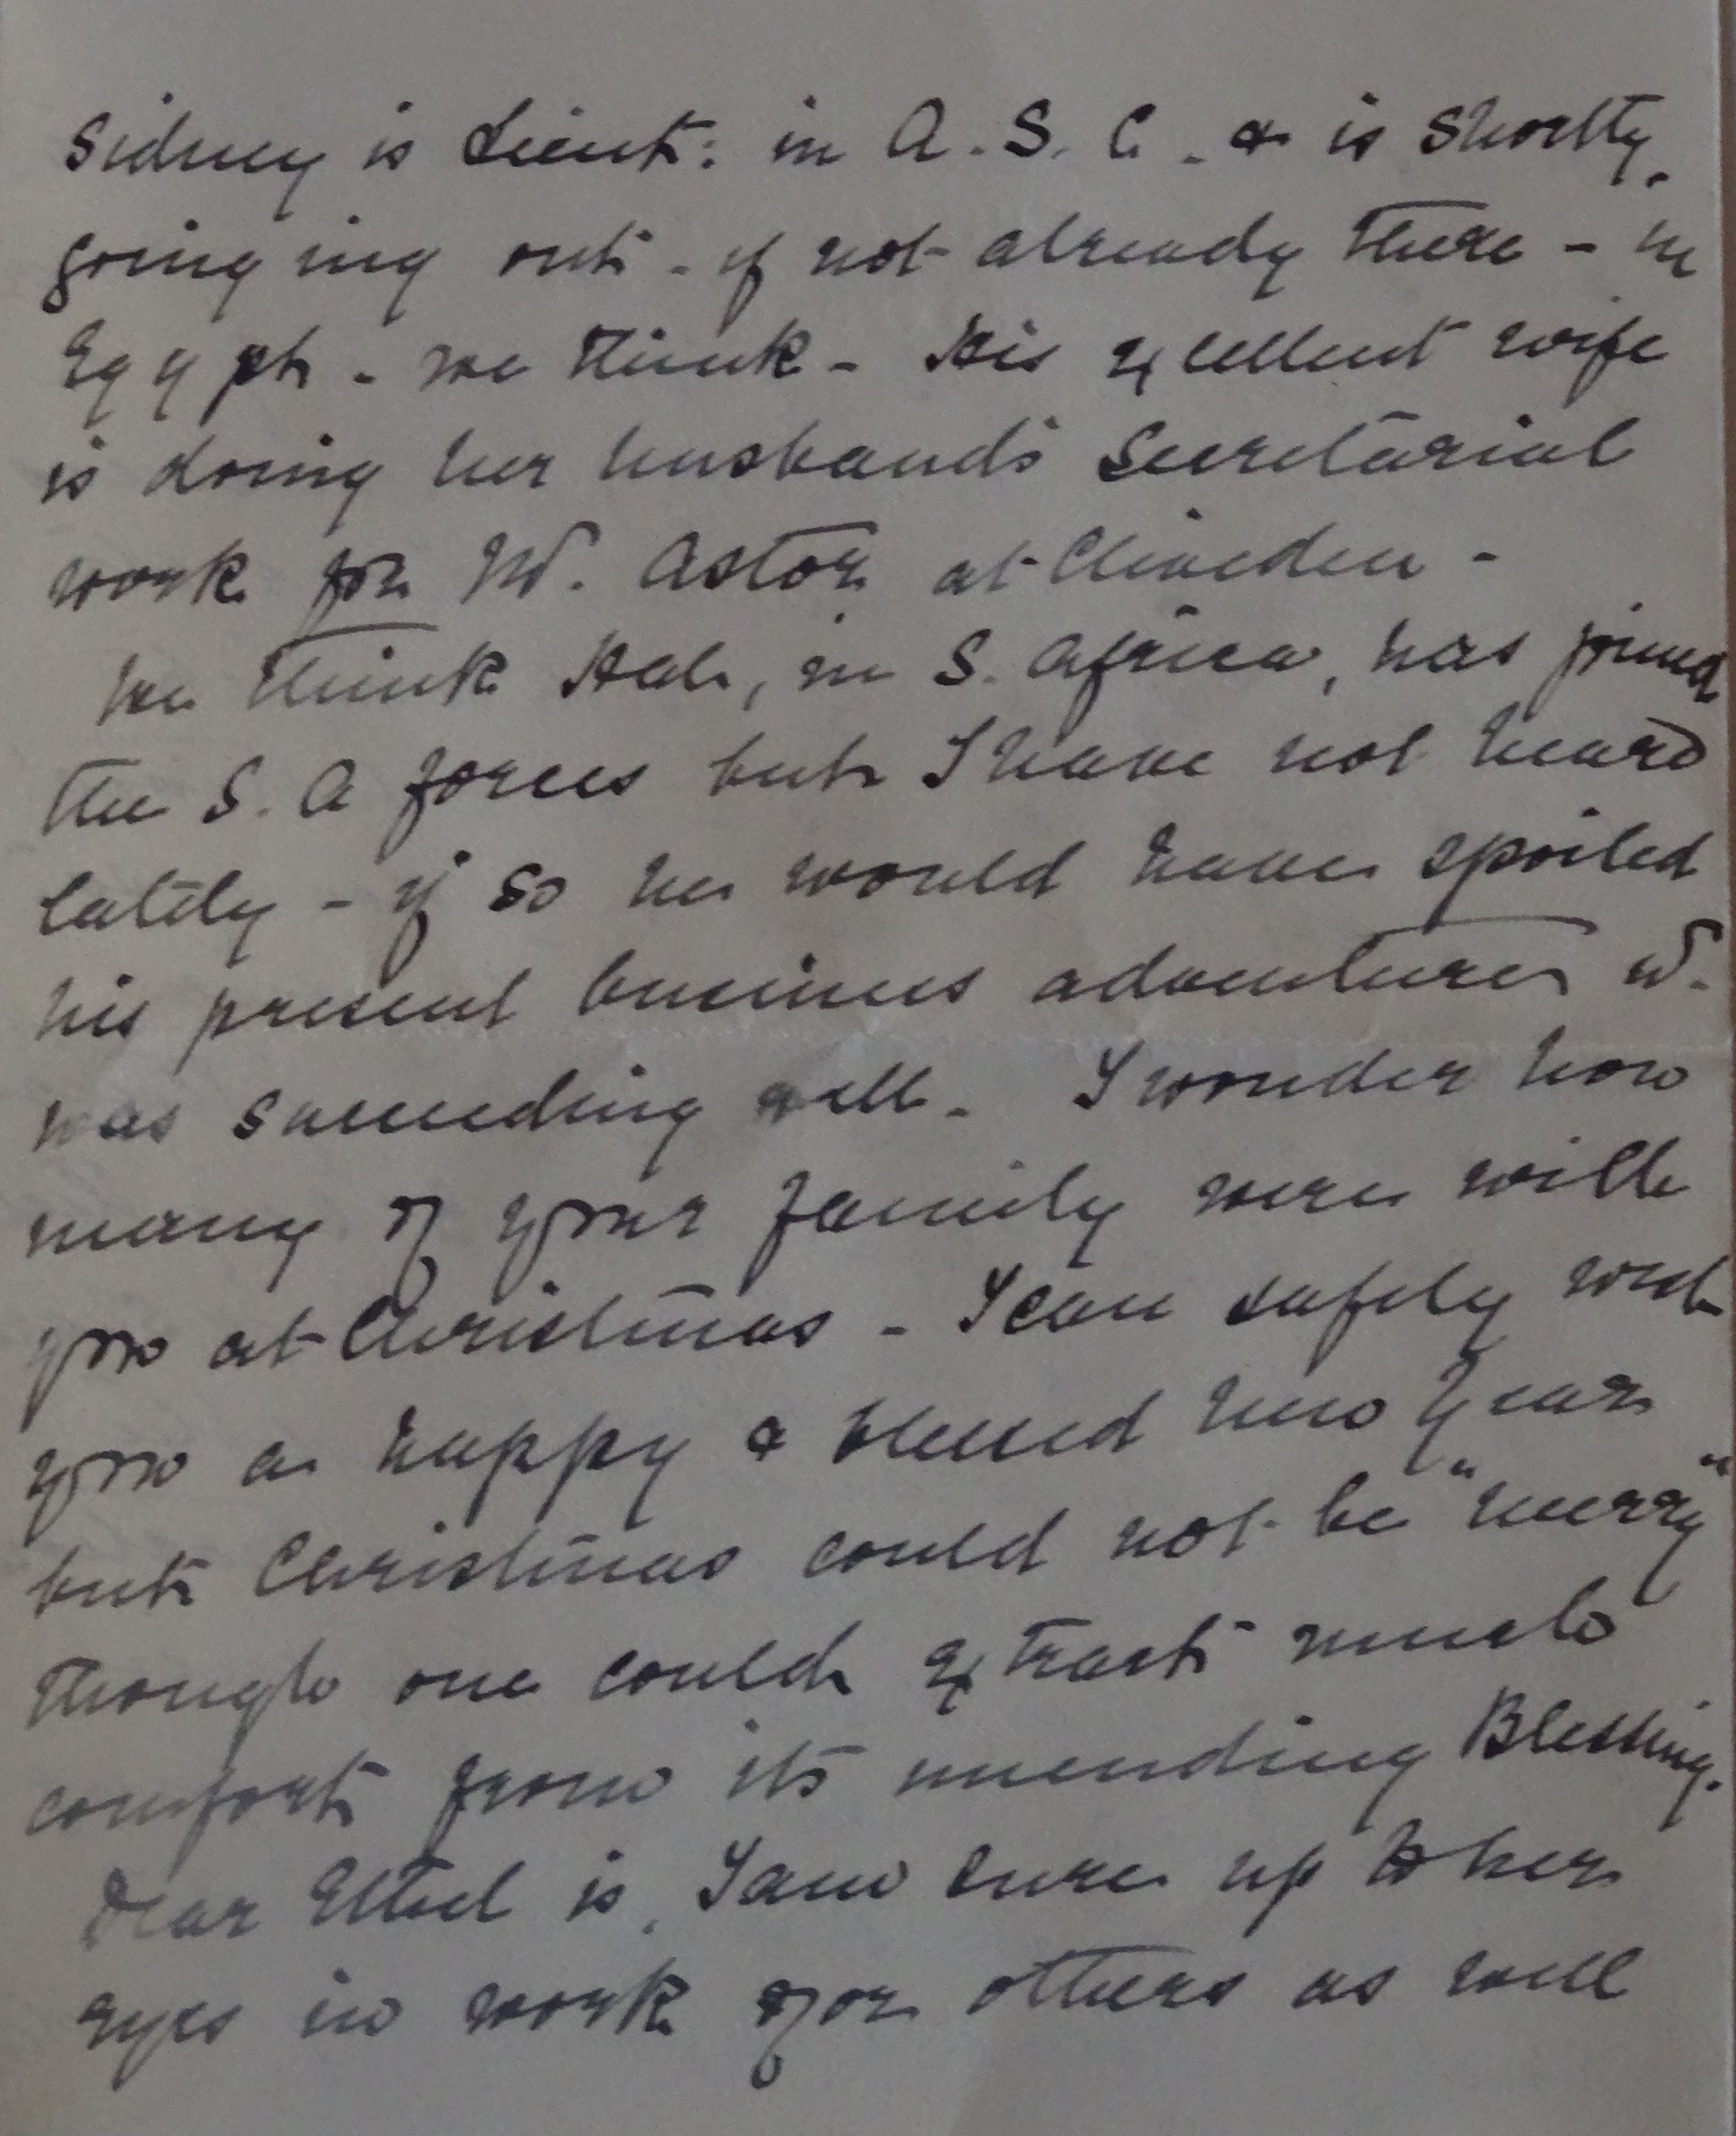 Sidney is Lieut: in A.S.C. & is shortly
going ing out - if not already there - in
Egypt - we think - His excellent wife
is doing her husband's Secretarial
work for W. Astor at Cliveden -
We think Hal, in S. Africa, has joined
the S.A forces but I have not heard
lately - if so he would have spoiled
his present business adventure w.
was succeeding well. I wonder how
many of your family were with
you at Christmas - I can safely wish
you a happy & blessed New Year
but Christmas could not be "merry"
though one could extract much
comfort from its unending Blessing.
Dear Ethel is, I am sure up to her
eyes in work for others as well